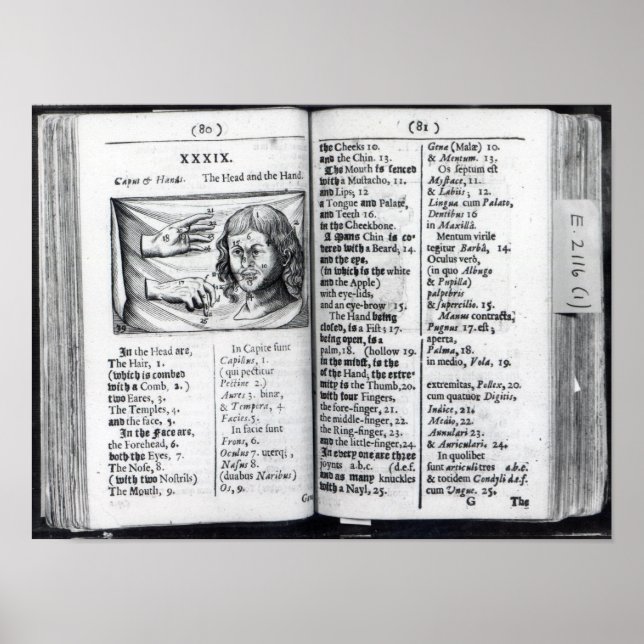 (80)
XXXIX.
Caput & Handi. The Head and the Hand.
In the Head are,
The Hair, 1.
(which is combed
with a Comb, 2.)
two Eares, 3.
The Temples, 4.
and the face, 5.
In the Face are,
the Forehead, 6.
both the Eyes, 7.
The Nose, 8.
(with two Nostrils)
The Mouth, 9.
In Capite sunt
Capillus, 1.
(qui pectitur
Pectine 2.)
Aures 3. binæ,
& Tempora, 4.
Facies. 5.
In facie sunt
Frons, 6.
Oculus 7. uterq;,
Nasus 8.
(duabus Naribus)
Os, 9.
Genæ
(81)
the Cheeks 10.
and the Chin. 13.
The Mouth is fenced
with a Mustacho, 11.
and Lips, 12
a Tongue and Palate,
and Teeth 16.
in the Cheekbone.
A Mans Chin is co-
vered with a Beard, 14.
and the eye,
(in which is the white
and the Apple)
with eye-lids,
and an eye-brow 15.
The Hand being
closed, is a Fist; 17.
being open, is a
palm, 18. (hollow 19.
in the midst, is the
of the Hand, the extre-
mity is the Thumb, 20.
with four Fingers,
the fore-finger, 21.
the middle-finger, 22.
the Ring-finger, 23.
and the little-finger, 24.
In every one are three
joynts a.b.c. (d.e.f.
and as many knuckles
with a Nayl, 25.
Genæ (Malæ) 10.
& Mentum. 13.
Os septum est
Mystace, 11.
& Labiis; 12.
Lingua cum Palato,
Dentibus 16
in Maxillâ.
Mentum virile
tegitur Barbâ, 14.
Oculus verò,
(in quo Albugo
& Pupilla)
palpebris
& supercilio. 15.
Manus contracta,
Pugnus 17. est;
aperta,
Palma, 18.
in medio, Vola, 19.
extremitas, Pollex, 20.
cum quatuor Digitis,
Indice, 21.
Medio, 22.
Annulari 23
& Auriculari. 24.
In quolibet
sunt articuli tres a.b.c.
& totidem Condyli d.e.f.
cum Ungue. 25.
G The
E. 2116 (1)